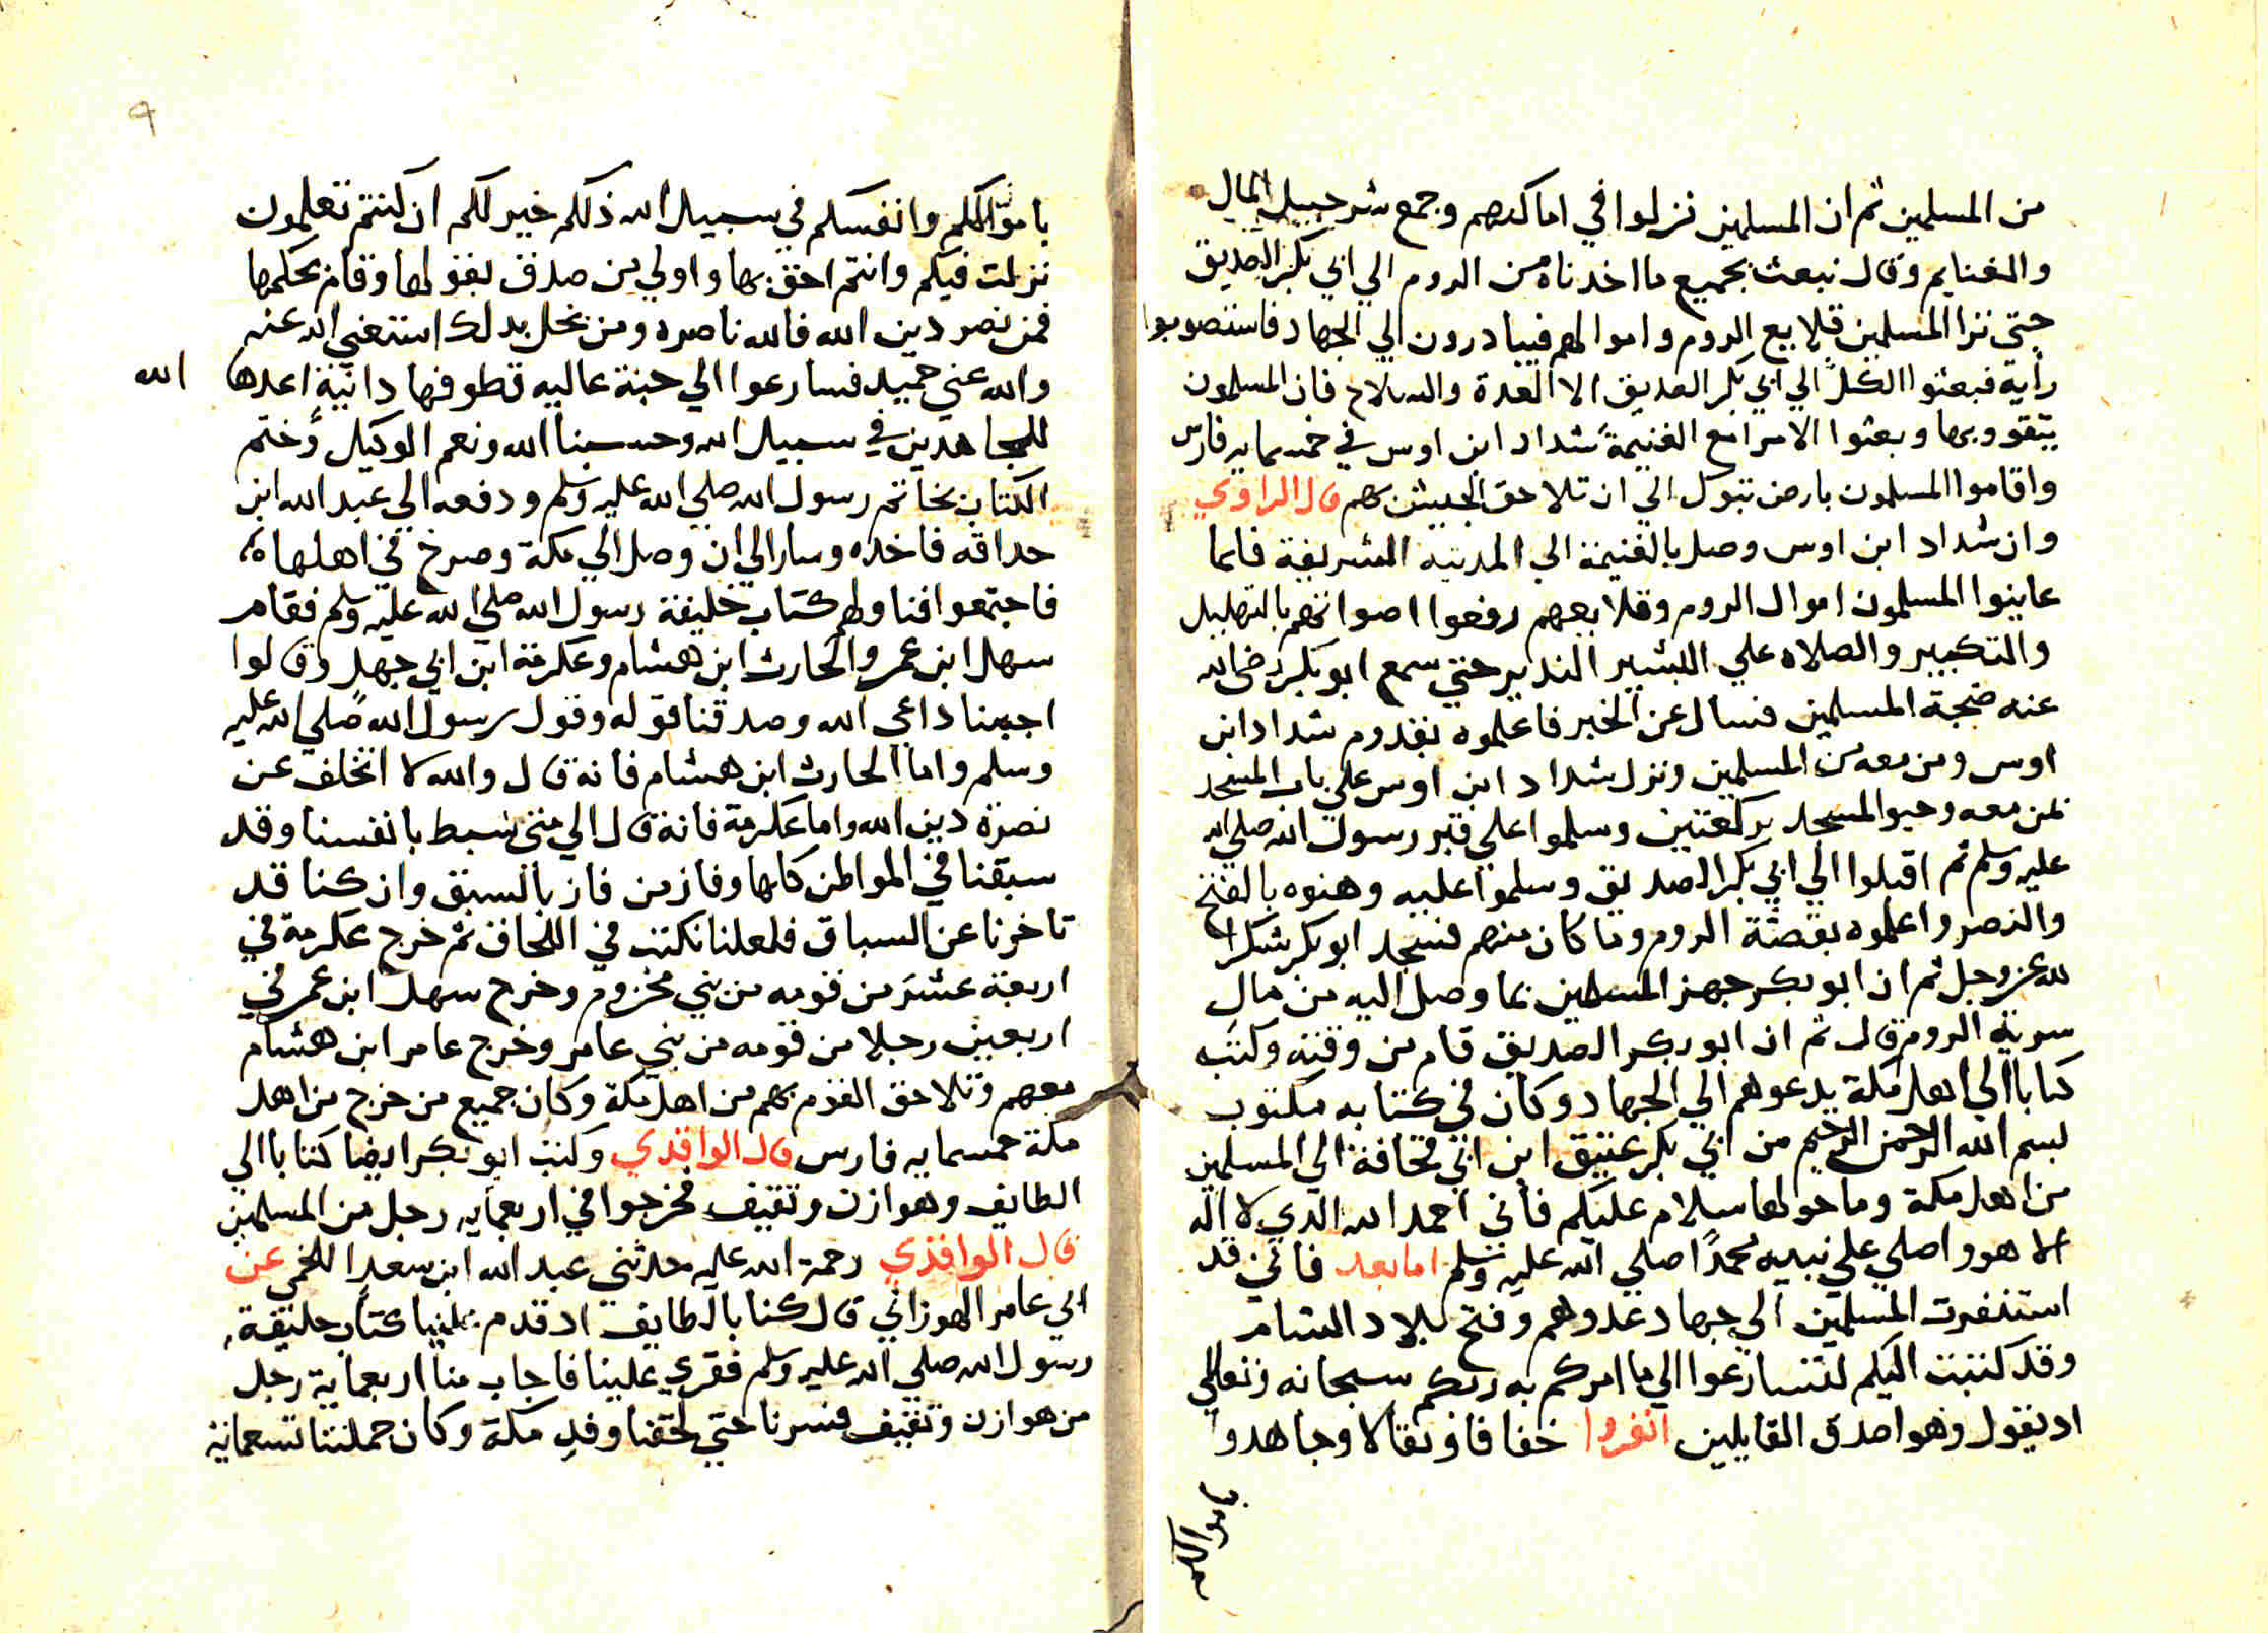 من المسلمين ثم ان المسلمين نزلوا في اماكنهم وجمع شرحبيل المال
والغنايم وقال نبعث بجميع ما اخدناه من الروم الي ابي بكر الصديق
حتي نزا المسلمين قلايع الروم واموالهم فيبادرون الي الجهاد فاستصوبوا
رأية فبعثوا الكلّ الي ابي بكر الصديق الا العدة والسلاح فان المسلمون
يتقووبها وبعثوا الامرا مع الغنيمة شداد ابن اوس في خمسمايه فارس
واقاموا المسلمون بارض تبوك الي ان تلاحق الجيش بهم قال الراوي
وان شداد ابن اوس وصل بالغنيمة الي المدينه الشريفة فلما
عاينوا المسلمون اموال الروم وقلايعهم رفعوا اصواتهم بالتهليل
والتكبير والصلاه علي البشير الندير حتي سمع ابو بكر رضي الله
عنه ضجة المسلمين فسال عن الخبر فاعلموه بقدوم شداد ابن
اوس ومن معه من المسلمين ونزل شداد ابن اوس علي باب المسجد
بمن معه وحيوا المسجد بركعتين وسلموا علي قبر رسول الله صلي الله
عليه وسلم ثم اقبلوا الي ابي بكر الصديق وسلموا عليه وهنوه بالفتح
والنصر واعلموه بقصّة الروم وما كان منهم فسجد ابو بكر شكرا
لله عز وجل ثم ان ابو بكر جهز المسلمين بما وصل اليه من مال
سرية الروم قال ثم ان ابو بكر الصديق قام من وقته وكتب
كتابا الي اهل مكة يدعوهم الي الجهاد وكان في كتابه مكتوب
بسم الله الرحمن الرحيم من ابي بكر عتيق ابن ابي قحافة الي المسلمين
من اهل مكة وما حولها سلام عليكم فأني احمد الله الدي لا اله
الا هو واصلي علي نبيه محمدًا صلي الله عليه وسلم اما بعد فاني قد
استنفرت المسلمين الي جهاد عدوهم وفتح بلاد الشام
وقد كتبت اليكم لتسارعوا الي ما امركم به ربكم سبحانه وتعالي
اد يقول وهو اصدق القايلين انفروا خفافا وثقالا وجاهدوا
باموالكم
باموالكم وانفسكم في سبيل الله ذلكم خير لكم ان كنتم تعلمون
نزلت فيكم وانتم احق بها واولي من صدق بقولها وقام بحكمها
فمن نصر دين الله فالله ناصره ومن بخل بدلك استغني الله عنه
والله غني حميد فسارعوا الي جنة عاليه قطوفها دانية اعدها الله
للمجاهدين في سبيل الله وحسبنا الله ونعم الوكيل وختم
الكتاب بخاتم رسول الله صلي الله عليه وسلم ودفعه الي عبد الله ابن
حداقه فاخده وسار الي ان وصل الي مكة وصرخ في اهلها
فاجتمعوا فناولهم كتاب خليفة رسول الله صلي الله عليه وسلم فقام
سهل ابن عمر والحارث ابن هشام وعكرمة ابن ابي جهل وقالوا
اجبنا داعي الله وصدقنا قوله وقول رسول الله صلي الله عليه
وسلم واما الحارث ابن هشام فانه قال والله لا اتخلف عن
نصرة دين الله واما عكرمة فانه قال الي متي نبسط بانفسنا وقد
سبقنا في المواطن كلها وفاز من فاز بالسبق وان كنا قد
تاخرنا عن السباق فلعلنا نكتب في اللحاق ثم خرج عكرمة في
اربعة عشر من قومه من بني مخزوم وخرج سهل ابن عمر في
اربعين رجلا من قومه من بني عامر وخرج عامر ابن هشام
معهم وتلاحق القوم بهم من اهل مكة وكان جميع من خرج من اهل
مكة خمسمايه فارس قال الواقدي وكتب ابو بكر ايضا كتابا الي
الطايف وهوازن وثقيف فخرجوا في اربعمايه رجل من المسلمين
قال الواقدي رحمة الله عليه حدثني عبد الله ابن سعيد اللخمي عن
ابي عامر الهوزاني قال كنا بالطايف اد قدم علينا كتاب خليفة
رسول الله صلي الله عليه وسلم فقري علينا فاجاب منا اربعماية رجل
من هوازن وثقيف فسرنا حتي لحقنا وفد مكة وكان جملتنا تسعماية